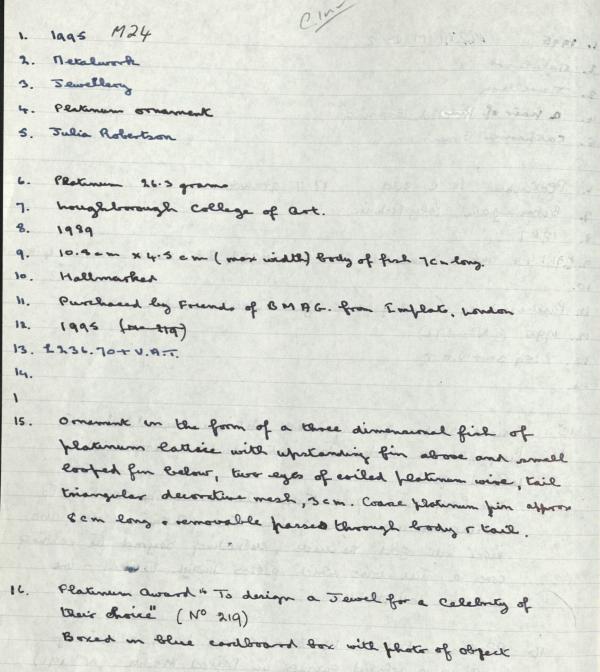 1. 1995 M24
2. Metalwork
3. Jewellery
4. Platinum ornament
5. Julia Robertson
6. Platinum 26.3 grams
7. Loughborough College of Art.
8. 1989
9. 10.8cm x 4.5cm (max width) body of fish 7cm long.
10. Hallmarked
11. Purchased by Friends of BMAG. from Implats, London
12. 1995
13. £236.70 + V.A.T.
14.
1
15. Ornament in the form of a three dimensional fish of
platinum lattice with upstanding fin above and small
looped fin below, two eyes of coiled platinum wire, tail
triangular decorative mesh, 3cm. Coarse platinum pin approx
8cm long & removable passes through body & tail.
16. Platinum Award "To design a Jewel for a Celebrity of
their choice" (No 219)
Boxed in blue cardboard box with photo of object